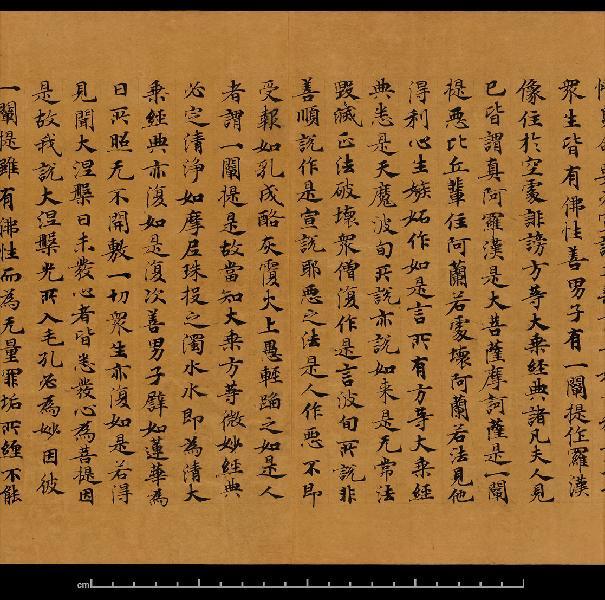 眾生皆有佛性善男子有一闡提住羅漢
像住於空處誹謗方等大乘經典諸凡夫人見
已皆謂真阿羅漢是大菩薩摩訶薩是一闡
提惡比丘輩住阿蘭若處壞阿蘭若法見他
得利心生嫉妬作如是言所有方等大乘經
典悉是天魔波旬所說亦說如來是无常法
毀滅正法破壞眾僧復作是言波旬所說非
善順說作是宣說耶惡之法是人作惡不即
受報如乳成酪灰覆火上愚輕蹈之如是人
者謂一闡提是故當知大乘方等微妙經典
必定清淨如摩尼珠投之濁水水即為清大
乘經典亦復如是復次善男子譬如蓮華為
日所照无不開敷一切眾生亦復如是若得
見聞大涅槃日未發心者皆悉發心為菩提因
是故我說大涅槃光所入毛孔必為妙因彼
一闡提雖有佛性而為无量罪垢所纏不能
cm